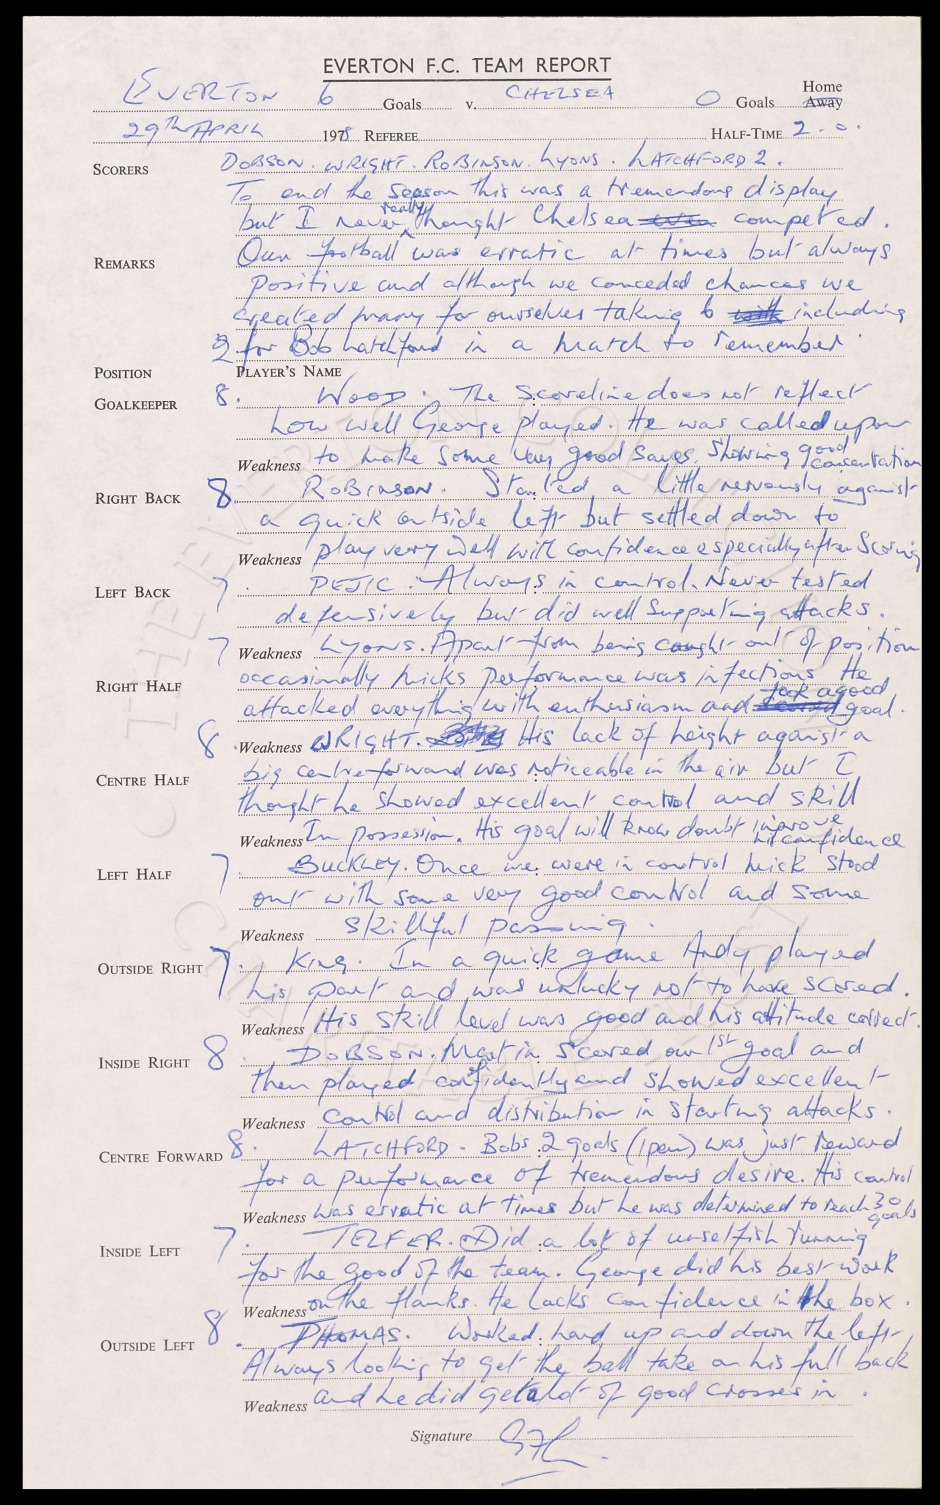 EVERTON F.C. TEAM REPORT
EVERTON 6 Goals v. CHELSEA 0 Goals Home Away
29TH APRIL 1978 REFEREE HALF-TIME 2.0.
SCORERS DOBSON. WRIGHT. ROBINSON. LYONS. LATCHFORD 2.
To end the season this was a tremendous display
but I never really thought Chelsea competed.
REMARKS Our football was erratic at times but always
positive and although we conceded chances we
created many for ourselves taking 6 including
2 for Bob Latchford in a match to remember.
POSITION PLAYER'S NAME
GOALKEEPER 8. WOOD. The scoreline does not reflect
how well George played. He was called upon
Weakness to make some very good saves. Showing good concentration
RIGHT BACK 8 ROBINSON. Started a little nervously against
a quick outside left but settled down to
Weakness play very well with confidence especially after scoring
LEFT BACK 7. PEJIC. Always in control. Never tested
defensively but did well supporting attacks.
7 Weakness Lyons. Apart from being caught out of position
RIGHT HALF occasionally Micks performance was infectious. He
attacked everything with enthusiasm and took a good goal.
8. Weakness WRIGHT. His lack of height against a
CENTRE HALF big centre-forward was noticeable in the air but I
thought he showed excellent control and skill
Weakness In possession. His goal will know doubt improve his confidence
LEFT HALF 7. BUCKLEY. Once we were in control Mick stood
out with some very good control and some
Weakness skillful passing.
OUTSIDE RIGHT 7. KING. In a quick game Andy played
his part and was unlucky not to have scored.
Weakness His skill level was good and his attitude correct.
INSIDE RIGHT 8. DOBSON. Martin scored our 1st goal and
then played confidently and showed excellent
Weakness control and distribution in starting attacks.
CENTRE FORWARD 8. LATCHFORD - Bobs 2 goals (1pen) was just reward
for a performance of tremendous desire. His control
Weakness was erratic at times but he was determined to reach 30 goals
INSIDE LEFT 7. TELFER. Did a lot of unselfish running
for the good of the team. George did his best work
Weakness on the flanks. He lacks confidence in the box.
OUTSIDE LEFT 8. THOMAS. Worked hard up and down the left.
Always looking to get the ball take on his full back
Weakness and he did get a lot of good crosses in.
Signature